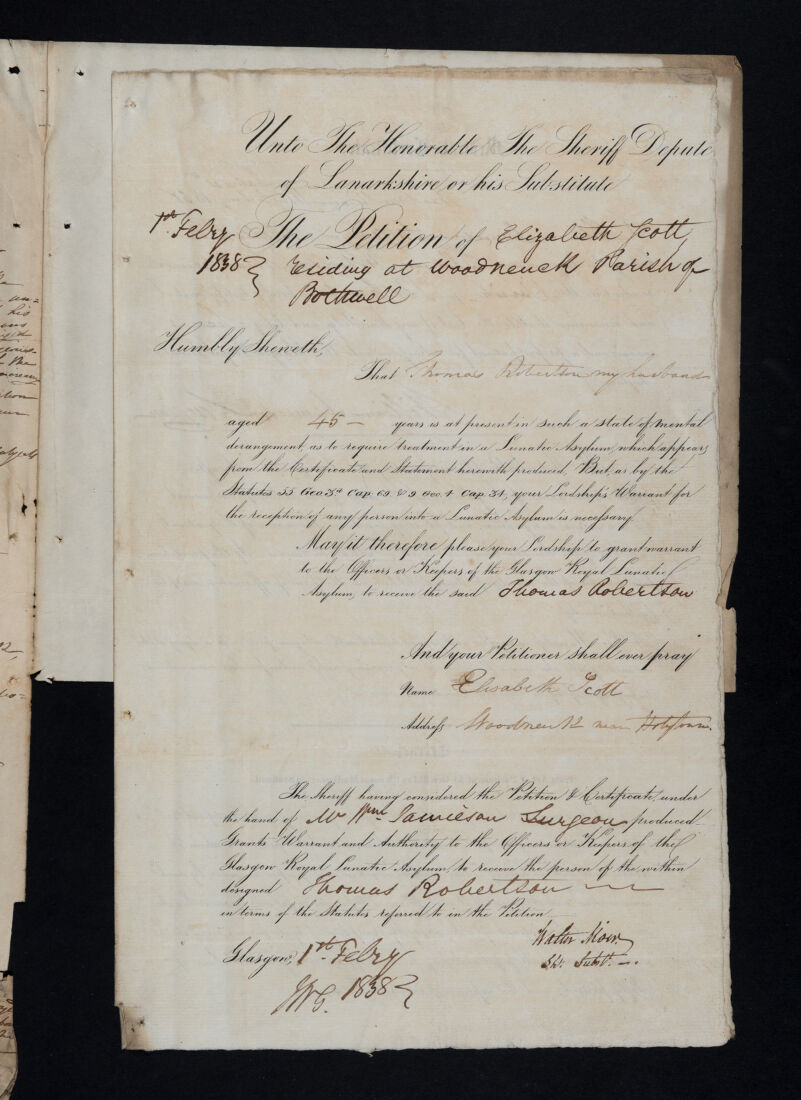 Unto The Honorable The Sheriff Depute
of Lanarkshire or his Substitute
1st Febry
1838
The Petition of Elizabeth Scott
residing at Woodneuck Parish of
Bothwell
Humbly Sheweth,
That Thomas Robertson my husband
aged 45 — years is at present in such a state of mental
derangement, as to require treatment in a Lunatic Asylum, which appears
from the Certificate and Statement herewith produced, But, as by the
Statutes 55 Geo 3rd Cap. 69. & 9 Geo. 4 Cap. 34, your Lordship's Warrant for
the reception of any person into a Lunatic Asylum is necessary.
May it therefore please your Lordship to grant warrant
to the Officers or Keepers of the Glasgow Royal Lunatic
Asylum, to receive the said Thomas Robertson
And your Petitioner shall ever pray
Name Elisabeth Scott
Address Woodneuk near Holytown.
The Sheriff having considered the Petition & Certificate, under
the hand of Mr Wm Jamieson Surgeon produced
Grants Warrant and Authority to the Officers or Keepers of the
Glasgow Royal Lunatic Asylum, to receive the person of the within
designed Thomas Robertson
in terms of the Statutes referred to in the Petition
Walter Moir
Sh: Subst. —.
Glasgow, 1st Febry
1838